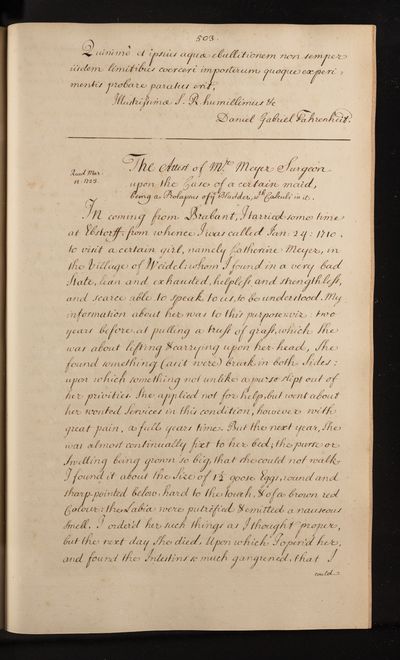 503.
Quinimò et ipsius aquæ ebullitionem non semper
iisdem limitibus coerceri imposterum quoque experi-
mentis probare paratus erit,
Illustrissimæ S. R. humillimus &c
Daniel Gabriel Fahrenheit.
The Attest of Mr. Meyer Surgeon
Read Mar.
upon the Case of a certain maid,
being a Prolapsus of ye Bladder, wth Calculi in it.
In coming from Brabant, I tarried some time
at Ebstorff; from whence I was called Jan: 24: 1710.
to visit a certain girl, namely Catherine Meyer, in
the Village of Weidel; whom I found in a very bad
State, lean and exhausted, helpless and strengthless,
and scarce able to speak to us, to be understood. My
information about her was to this purpose viz: two
years before, at pulling a truss of grass, which she
was about lifting & carrying upon her head, She
found something (as it were) break in both Sides:
upon which something not unlike a purse slipt out of
her privities. She applied not for help, but went about
her wonted Services in this condition, however with
great pain, a full years time. But the next year, She
was almost continually fixt to her bed; the purse or
Swelling being grown so big, that she could not walk.
I found it about the Size of 1½ goose Eggs, round and
sharp-pointed below, hard to the touch, & of a brown red
Colour: the Labia were putrified & emitted a nauseous
Smell. I order'd her such things as I thought proper,
but the next day She died. Upon which I open'd her,
and found the Intestins so much gangrened, that I
could